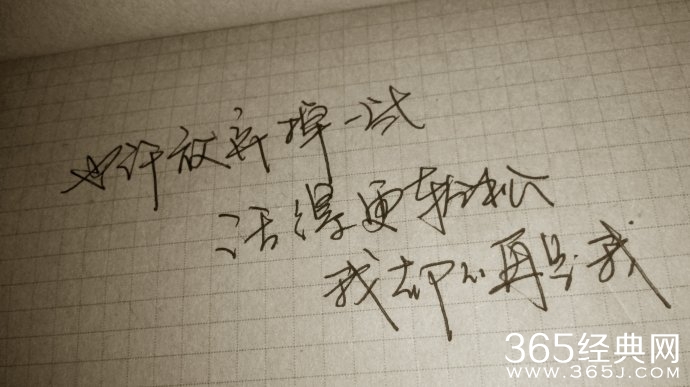 也许放弃掉一些
活得更轻松
我却不再是我
365经典网
WWW.365J.COM